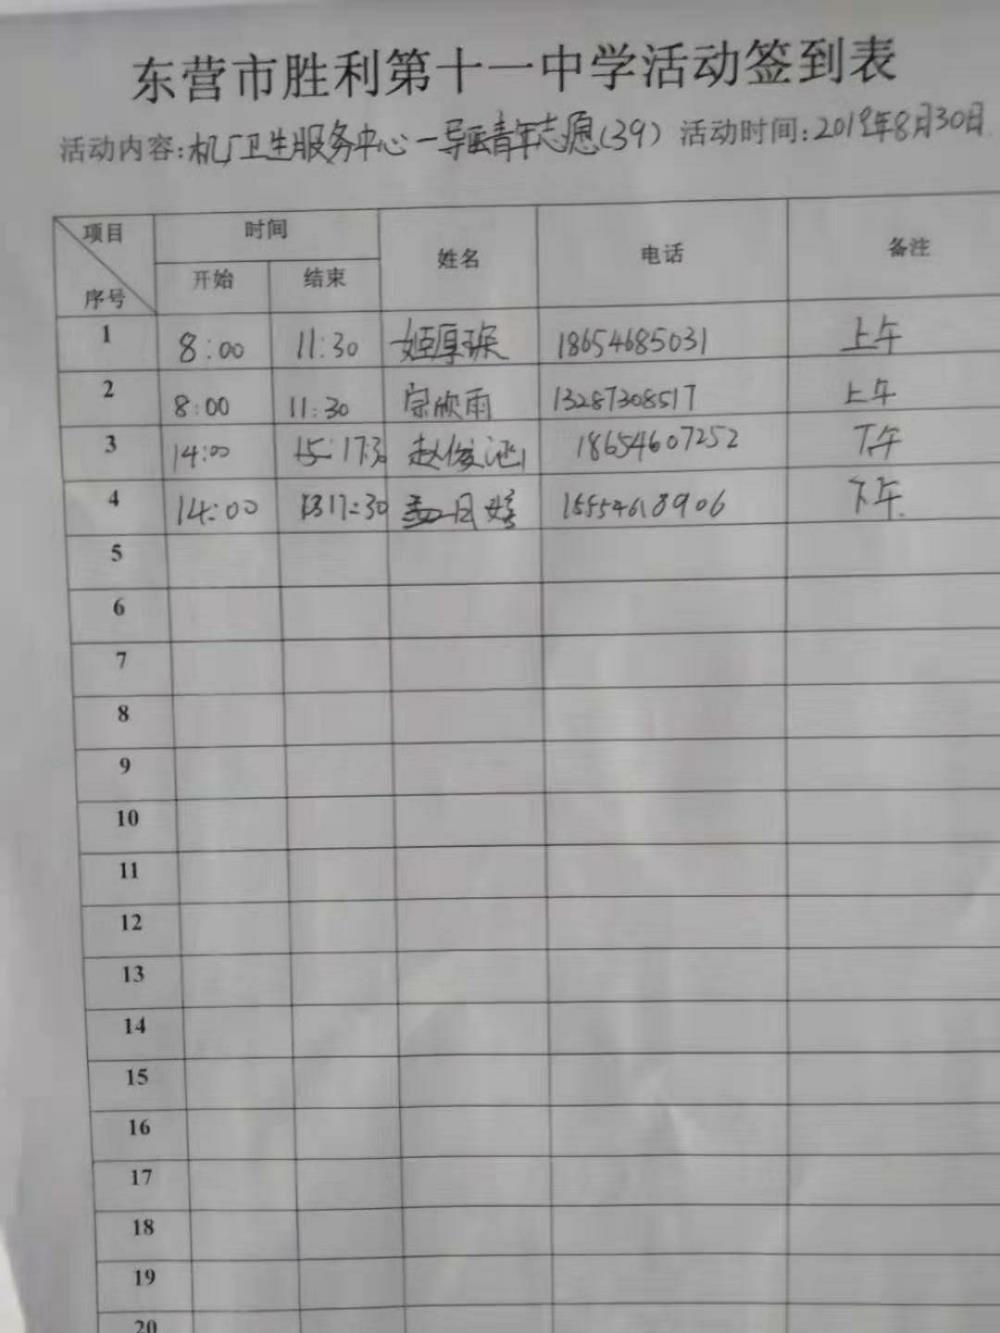 东营市胜利第十一中学活动签到表
活动内容:机厂卫生服务中心一导医青年志愿(39) 活动时间:2019年8月30日
项目 时间 姓名 电话 备注
序号 开始 结束
1 8:00 11:30 姬厚琛 18654685031 上午
2 8:00 11:30 宗欣雨 13287308517 上午
3 14:00 17:30 赵俊涵 18654607252 下午
4 14:00 17:30 孟月婷 15554618906 下午
5
6
7
8
9
10
11
12
13
14
15
16
17
18
19
20